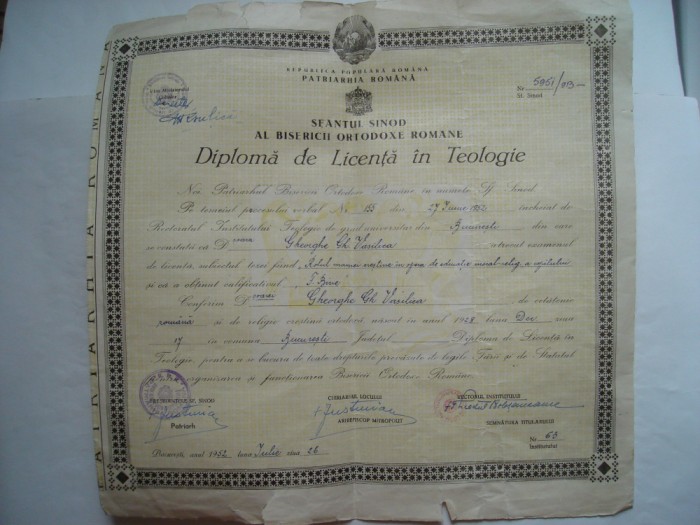 REPUBLICA POPULARĂ ROMÂNĂ
PATRIARHIA ROMÂNĂ
Nr. 5951/953
Sf. Sinod
SFÂNTUL SINOD
AL BISERICII ORTODOXE ROMANE
Diplomă de Licență în Teologie
Noi Patriarhul Bisericii Ortodoxe Române, cu Sf. Sinod
Pe temeiul procesului verbal Nr. 155 din 27 Iunie 1952 incheiat de
Rectoratul Institutului Teologic de grad universitar din București din care
se constată că D Gheorghe Gh. Vasilica a trecut examenul
de licență, subiectul tezei fiind "Rolul mamei creștine în opera de educație moral-relig. a copilului"
și că a obținut calificativul "F. Bine"
Conferim D Gheorghe Gh. Vasilica, de cetățenie
română și de religie creștină ortodoxă născut în anul 1928 luna Dec ziua
17 în comuna București Județul Diploma de Licență în
Teologie, pentru a se bucura de toate drepturile prevăzute de legile Țării și de Statutul
organizarea și funcționarea Bisericii Ortodoxe Române
SF. SINOD
CHIRIARHUL LOCULUI
RECTORUL INSTITUTULUI
+ Justinian
+ Justinian
Patriarh
ARHIEPISCOP MITROPOLIT
SEMNĂTURA TITULARULUI
Nr. 63
Institutului
București, anul 1952 luna Iulie ziua 26
PATRIARHIA ROMÂNĂ